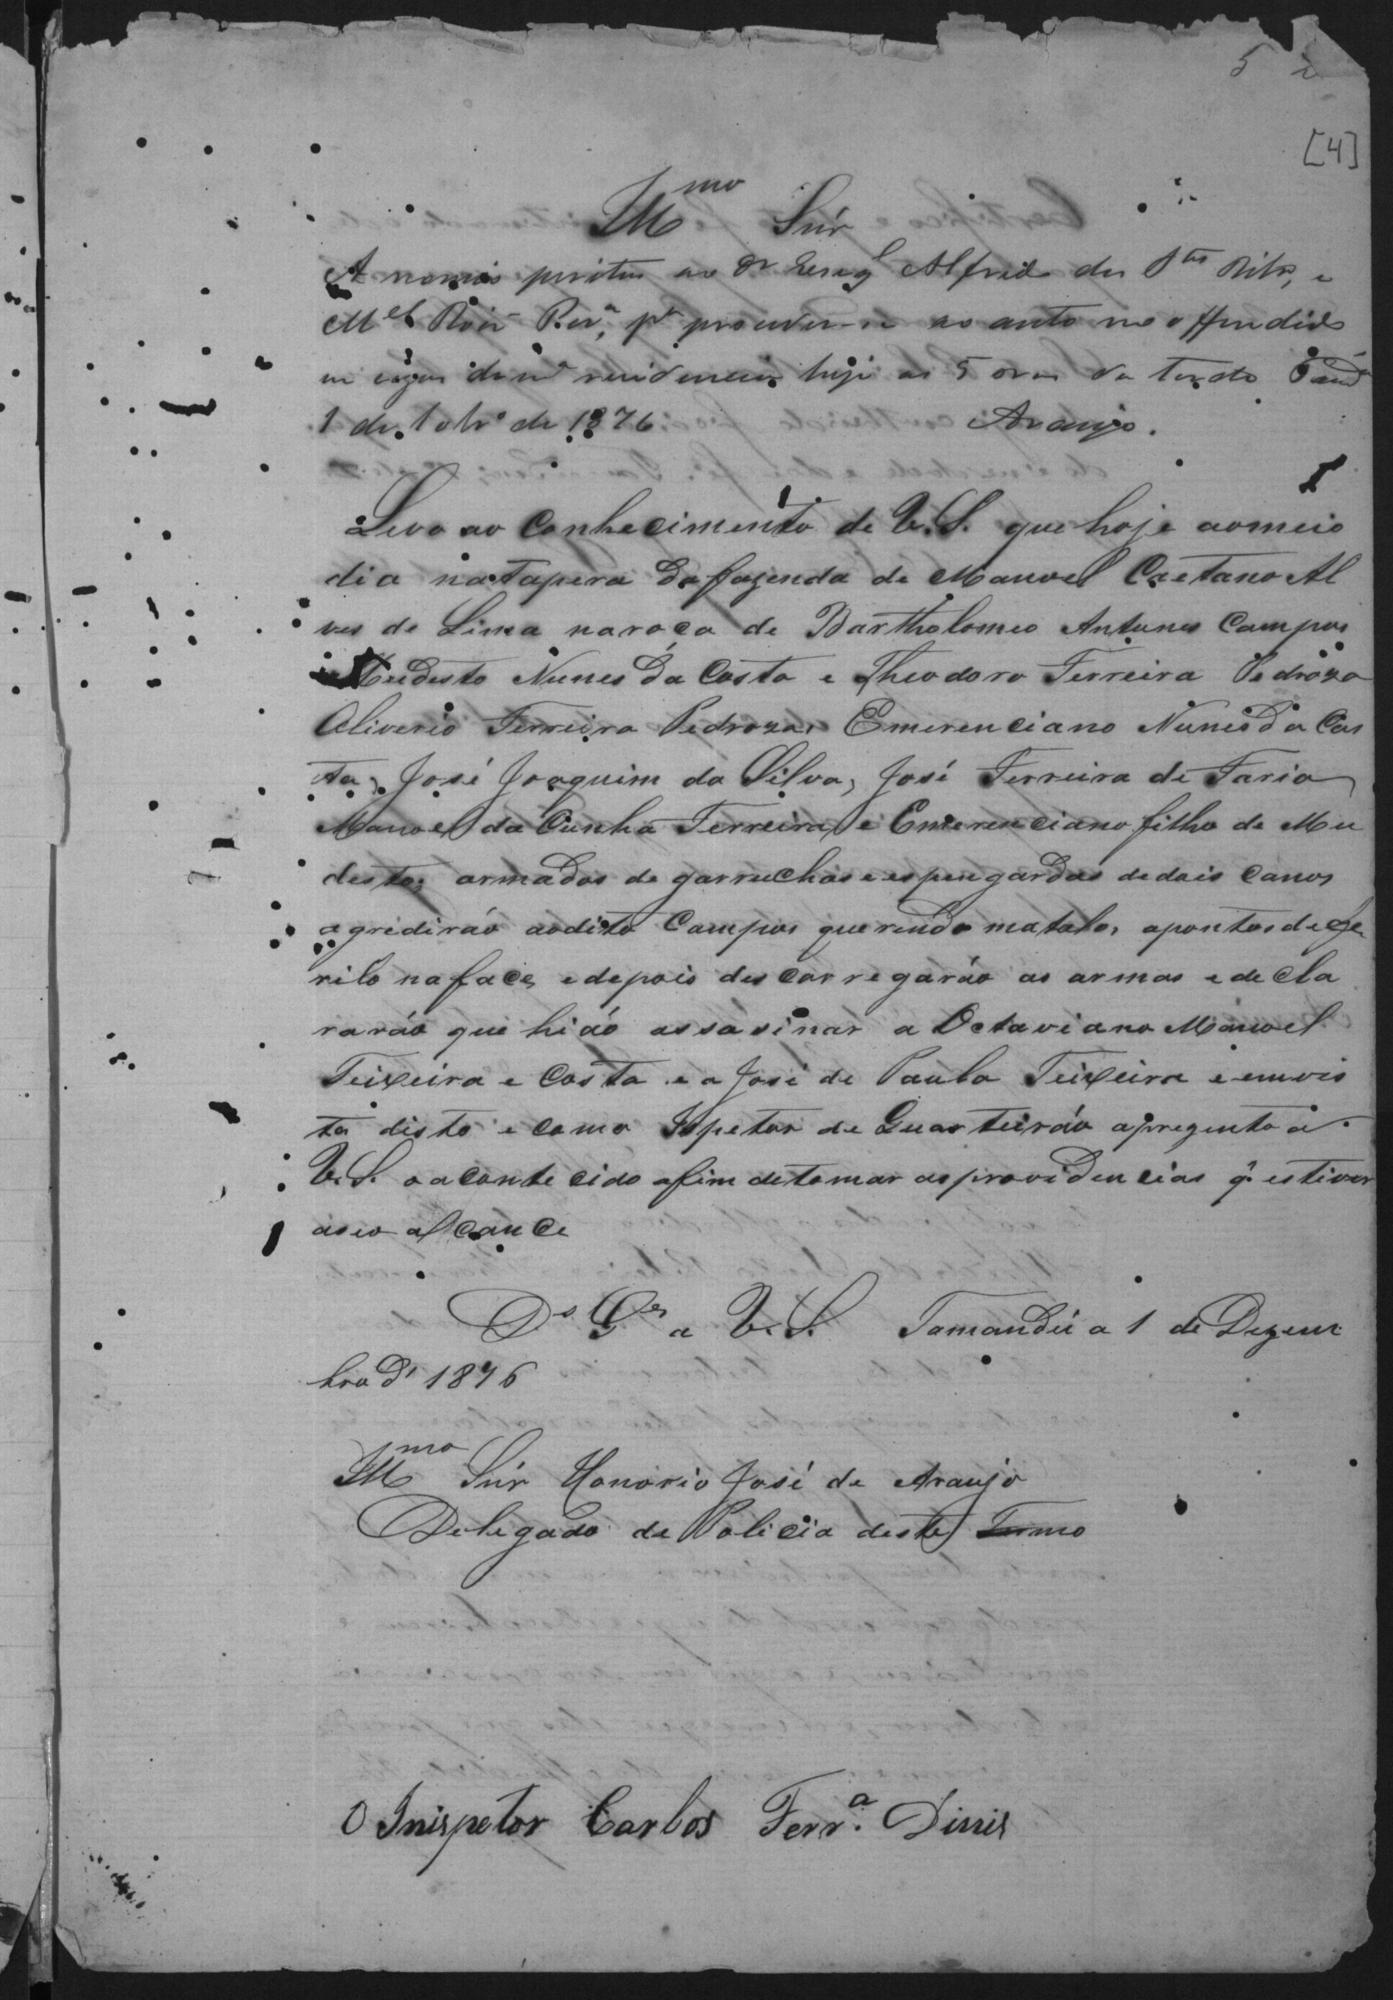 5
[4]
Illmo Snr
A nomeio peritos ao Alfredo dos Stos Ribo, e
Mel Perª, pª proceder-se ao auto no offendido
residencia hoje as 5 oras da tarde
1 de 10brº de 1876. Araujo.
Levo ao Conhecimento de V.S. que hoje aomeio
dia natapera dafazenda de Manoel Caetano Al
ves de Lima naroça de Bartholomeo Antunes Campos
Mudesto Nunes da Costa e Theodoro Ferreira Pedroza
Oliverio Ferreira Pedroza, Emerenciano Nunes Da Cos
ta, José Joaquim da Silva, José Ferreira de Faria,
Manoel da Cunha Ferreira, e Emerenciano filho de Mu
desto, armados de garruchas e espengardas dedois Canos
agredirão aodito Campos querendo matalo, apontos de fe
rilo naface, edepois descarregarão as armas e decla
rarão que hião assasinar a Octaviano Manoel
Teixeira e Costa e a José de Paula Teixeira e emvis
ta disto e como Ispetor de Quarteirão aprezento a
V.S. oacontecido afim detomar asprovidencias q̃ estiver
aseo alcance
Ds Ge a V.S. Tamanduá 1 de Dezem
bro d' 1876
Illmo Snr Honorio José de Araujo
Delegado de Policia deste Termo
O Inispetor Carlos Ferrª. Dinis